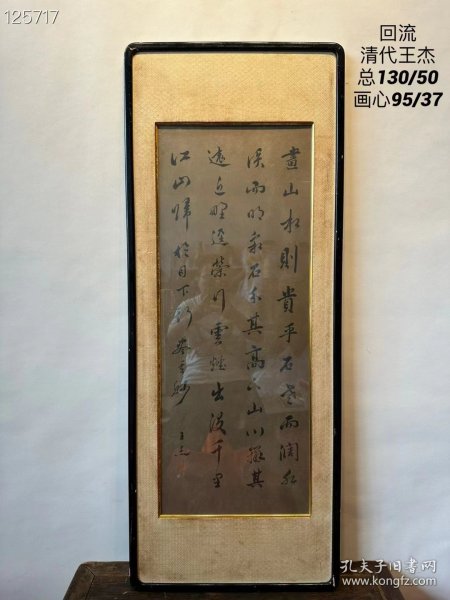 125717
回流
清代王杰
总130/50
画心95/37
畫山水則貴乎石老而潤水
淡而明泉石分其高下山川發其
遠近野逕縈行雲煙出沒千里
江山歸於目下
王杰
孔夫子旧书网
www.kongfz.com